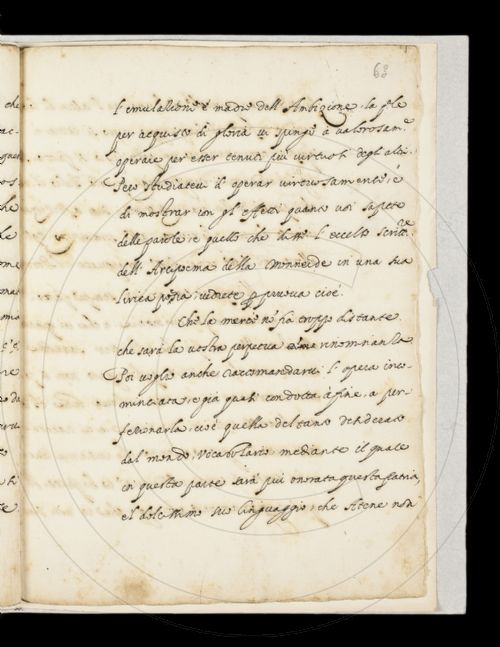 63
L'emulatione è madre dell'Ambizione, la qle
per acquisto di gloria vi spinge à valorosam.te
operare per esser tenuti più virtuosi degl'altri.
Però studiatevi il operar virtuosamente, e
di mostrar con gl'effetti quanto voi sapete
delle parole, e quello che disse l'eccelso Scritt.re
dell'Arcipoema della Monneide in una sua
lirica poesia, vedrete p pruova cioè.
Che la mercè nō fia troppo distante
che sarà la vostra perpetua rinominanza
Poi voglio anche raccomandarvi l'opera inco-
minciata, e già quasi condotta à fine, a per-
fetionarla, cioè quella del tanto desiderato
dal mondo, Vocabolario mediante il quale
in questa parte sarà più onorata questa patria,
el dolcissimo suo linguaggio, che Atene non